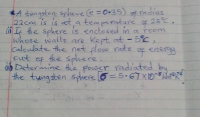 A tungsten sphere (e = 0.35) of radius
22cm is is at a temperature of 25°C.
(i) If the sphere is enclosed in a room
whose walls are kept at -5°C,
calculate the net flow rate of energy
out of the sphere.
(ii) Determine the power radiated by
the tungsten sphere [σ = 5.67 x 10⁻⁸